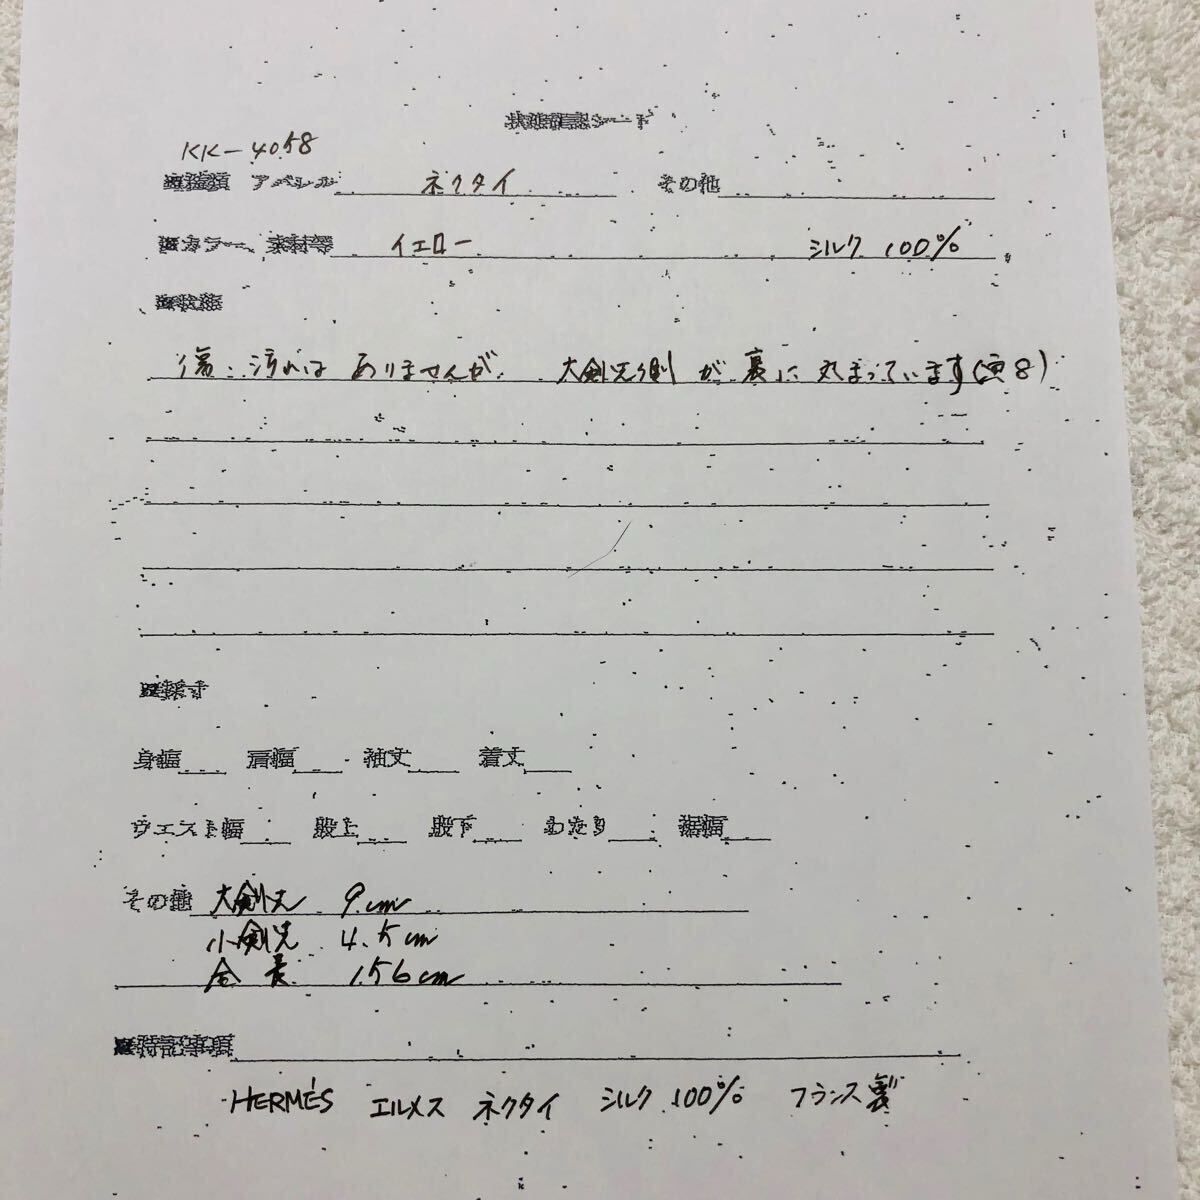 状態確認シート
KK-4058
■種類 アパレル ネクタイ その他
■カラー、素材等 イエロー シルク 100%
■状態
傷、汚れは ありませんが、 大剣先側 が 裏に 丸まっています(画8)
■採寸
身幅 肩幅 袖丈 着丈
ウエスト幅 股上 股下 わたり 裾幅
その他 大剣先 9cm
小剣先 4.5cm
全長 156cm
■特記事項
HERMÈS エルメス ネクタイ シルク 100% フランス製